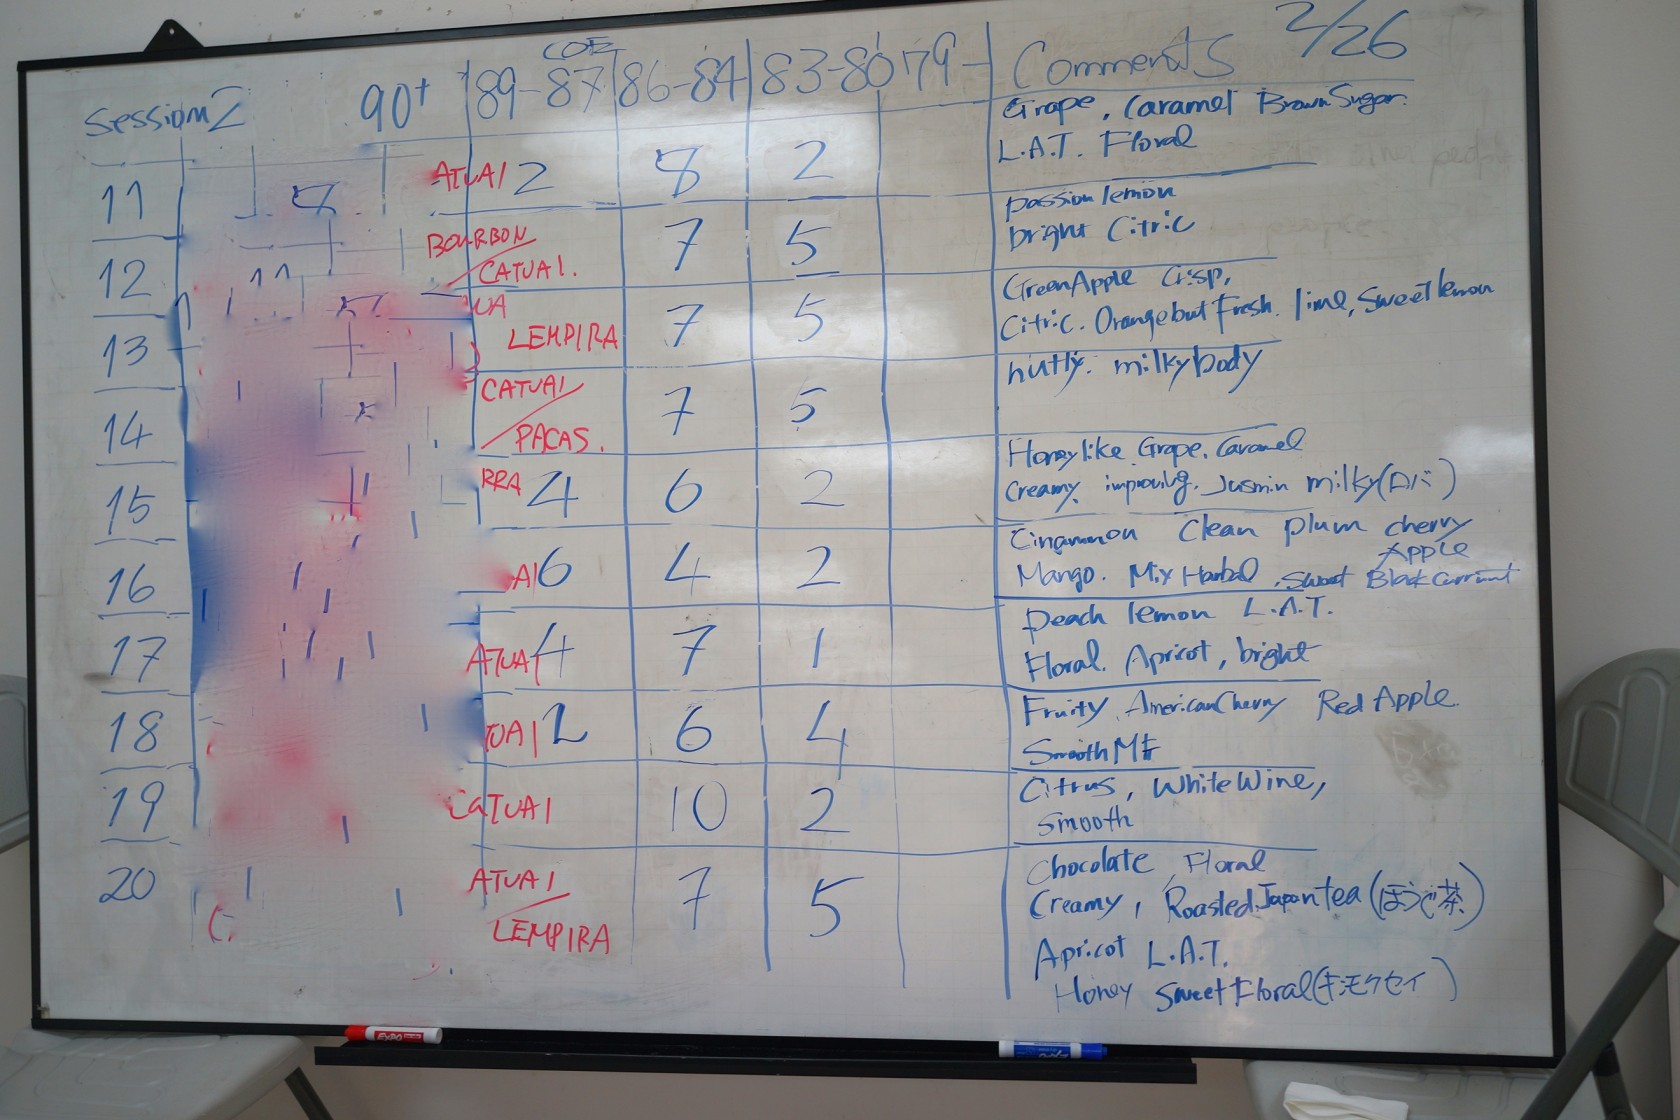 2/26
COE
Session2 90+ 89-87 86-84 83-80 79- Comments
11 ATUAI 2 8 2 Grape, Caramel BrownSugar.
L.A.T. Floral
12 BOURBON 7 5 passion lemon
CATUAI. bright Citric
13 UA 7 5 GreenApple Crisp,
LEMPIRA Citric. Orange but Fresh. lime, Sweet lemon
14 CATUAI 7 5 nutty. milkybody
PACAS.
15 RRA 4 6 2 Honeylike Grape. Caramel
Creamy. improving. Jusmin milky(ロバ)
16 AI 6 4 2 Cinammon Clean plum cherry
Apple
Mango. Mix Harbal, sweet Blackcurrant
17 ATUAI 4 7 1 peach lemon L.A.T.
Floral. Apricot, bright
18 TUAI 2 6 4 Fruity, AmericanCherry Red Apple.
Smooth MF
19 CaTUAI 10 2 Citrus, WhiteWine,
smooth
20 ATUAI 7 5 Chocolate, Floral
LEMPIRA Creamy, Roasted.Japan tea (ほうじ茶)
Apricot L.A.T.
Honey sweet Floral(キンモクセイ)
EXPO